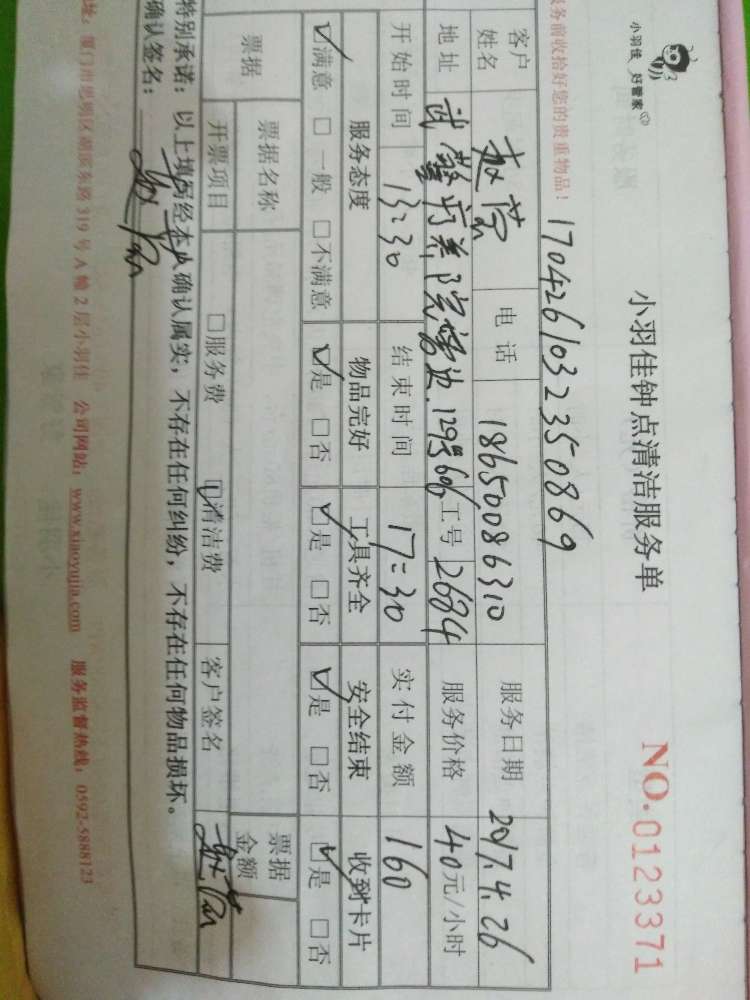 小羽佳 好管家
小羽佳钟点清洁服务单
NO.0123371
务前收拾好您的贵重物品！
17042610323508 69
客户姓名 电话 18650086310 服务日期 2017.4.26
地址 129号606 工号 2684 服务价格 40元/小时
开始时间 13:30 结束时间 17:30 实付金额 160
服务态度 物品完好 工具齐全 安全结束 收到卡片
☑满意 □一般 □不满意 ☑是 □否 ☑是 □否 ☑是 □否 ☑是 □否
票据 票据名称 票据金额
开票项目 □服务费 □清洁费 客户签名
特别承诺：以上填写经本人确认属实，不存在任何纠纷，不存在任何物品损坏。
确认签名：
址：厦门市思明区湖滨东路319号A幢2层小羽佳 公司网站：www.xiaoyujia.com 服务监督热线：0592-5888123